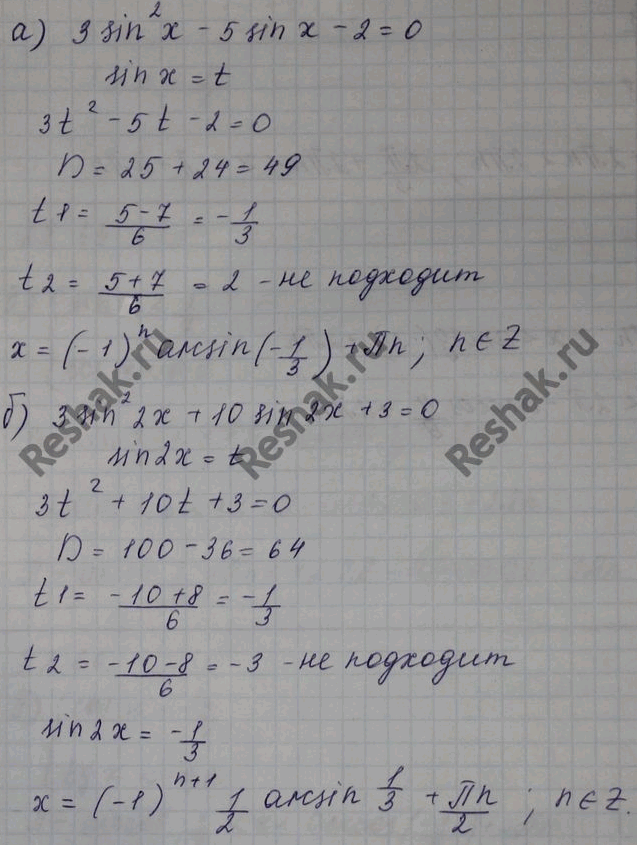 а) 3 sin²x - 5 sin x - 2 = 0
sin x = t
3t² - 5t - 2 = 0
D = 25 + 24 = 49
t1 = (5-7)/6 = -1/3
t2 = (5+7)/6 = 2 - не подходит
x = (-1)ⁿ arcsin(-1/3) + Пn; n ∈ Z
б) 3 sin²2x + 10 sin 2x + 3 = 0
sin2x = t
3t² + 10t + 3 = 0
D = 100 - 36 = 64
t1 = (-10+8)/6 = -1/3
t2 = (-10-8)/6 = -3 - не подходит
sin2x = -1/3
x = (-1)ⁿ⁺¹ 1/2 arcsin 1/3 + Пn/2; n ∈ Z.
Reshak.ru
Reshak.ru
Reshak.ru